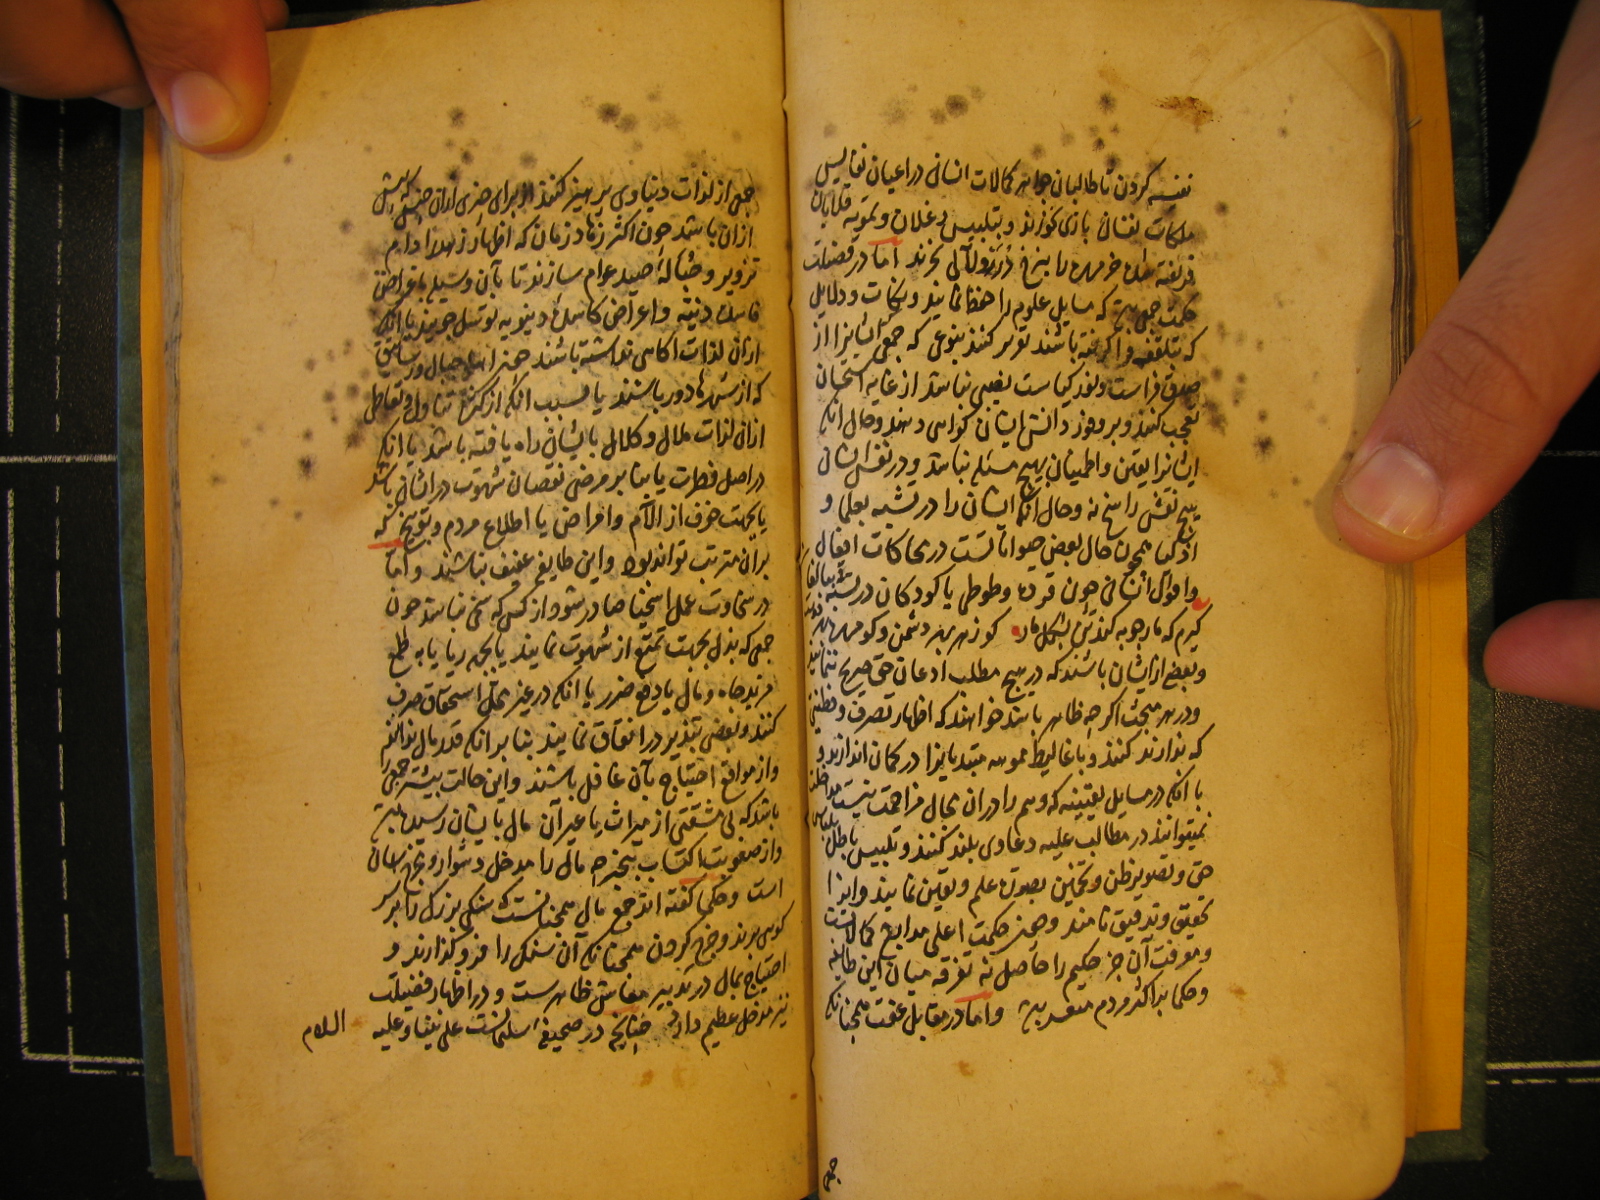 نفسه کردن تا طالبان جواهر کمالات انسانی در اعیان نفایس
ملکات نفسانی بازی نخورند و بتلبیس دغلان و تمویه قلابان
فریفته شده خر مهره را بنرخ درر و لآلی نخرند اما در فضیلت
حکمت جمعی که مسایل علوم را حفظ نمایند و نکات و دلایل
که بتلقف فرا گرفته باشند تقریر کنند بنوعی که جمعی ایشانرا از
صدق فراست و نور کیاست نصیبی نباشد از غایه استحسان
تعجب کنند و بر وفور دانش ایشان گواهی دهند و حال آنکه
ایشانرا یقین و اطمینان بهیچ مسئله نباشد و در نفس ایشان
هیچ نقش راسخ نه و حال ایشان را در تشبه بعلما و
اذکیا همچون حال بعضی حیواناتست در محاکات افعال
و اقوال انسانی چون قرده و طوطی یا کودکان در تشبه ببالغان
گیرم که مارچوبه کند تن بشکل مار کو زهر بهر دشمن و کو مهره بهر دوست
و بعضی از ایشان باشند که در هیچ مطلب اذعان حق صریح ننمایند
و در هر مبحث اگر چه ظاهر باشد خواهند که اظهار تصرف و فطنتی
که ندارند کنند و باغالیط مموهه مبتدیانرا در گمان اندازند و
با آنکه در مسایل یقینیه که وهم را در آن مجال مزاحمت نیست مداخله
نمیتوانند در مطالب علیه دعاوی بلند کنند و تلبیس باطل بلباس
حق و تصویر ظن و تخمین بصورت علم و یقین نمایند و اینرا
تحقیق و تدقیق نامند و چون حکمت اعلی مدارج کمالاتست
و معرفت آن جز حکیم را حاصل نه تفرقه میان این طایفه
و حکما بر اکثر مردم متعسر و اما در مقابل عفت همچنانکه
جمعی
جمعی از لذات دنیاوی پرهیز کنند از برای چیزی از آن جنس که بیش
از آن باشد چون اکثر زهاد زمان که اظهار زهد را دام
تزویر و حباله صید عوام سازند تا بآن وسیله باغراض
فاسده دنیه و اعراض کاسده دنیویه توسل جویند یا آنکه
از آن لذات آگاهی نداشته باشند همچو اهل جبال و رساتیق
که از شهرها دور باشند یا بسبب آنکه از کثرت تناول و تعاطی
از آن لذات ملال و کلال بایشان راه یافته باشد یا آنکه
در اصل فطرت یا بنا بر مرضی نقصان شهوت در ایشان باشد
یا بجهت خوف از آلام و امراض یا اطلاع مردم و توبیخ که
بر آن مترتب تواند بود و این طایفه عفیف نباشند و اما
در سخاوت عمل اسخیا صادر شود از کسی که سخی نباشد چون
جمعی که بذل بجهت تمتع از شهوت نمایند یا بجهت ریا یا به طمع
مزید جاه و مال یا دفع ضرر یا آنکه در غیر محل استحقاق صرف
کنند و بعضی تبذیر در انفاق نمایند بنا بر آنکه قدر مال ندانند
و از مواقع احتیاج بآن غافل باشند و این حالت بیشتر جمعی را
باشد که بی مشقتی از میراث یا غیر آن مال بایشان رسیده
و از صعوبت اکتساب بیخبر چه مال را مدخل دشوار و مخرج آسان
است و حکما گفته اند جمع مال همچنانست که سنگی بزرگ را بر سر
کوهی برند و خرج کردن همچنانکه آن سنگ را فرو گذارند و
احتیاج بمال در تدبیر معاش ظاهرست و در اظهار فضیلت
نیز مدخل عظیم دارد چنانچه در صحیفه سلیمانست علی نبینا و علیه السلام